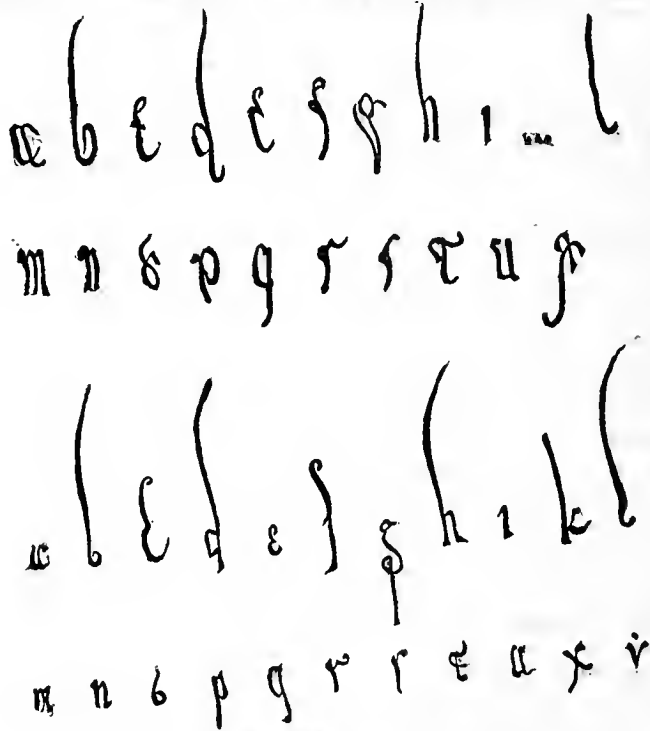 a b c d e f g h i ... l
m n o p q r s t u x
a b c d e f g h i k l
m n o p q r s t u x y